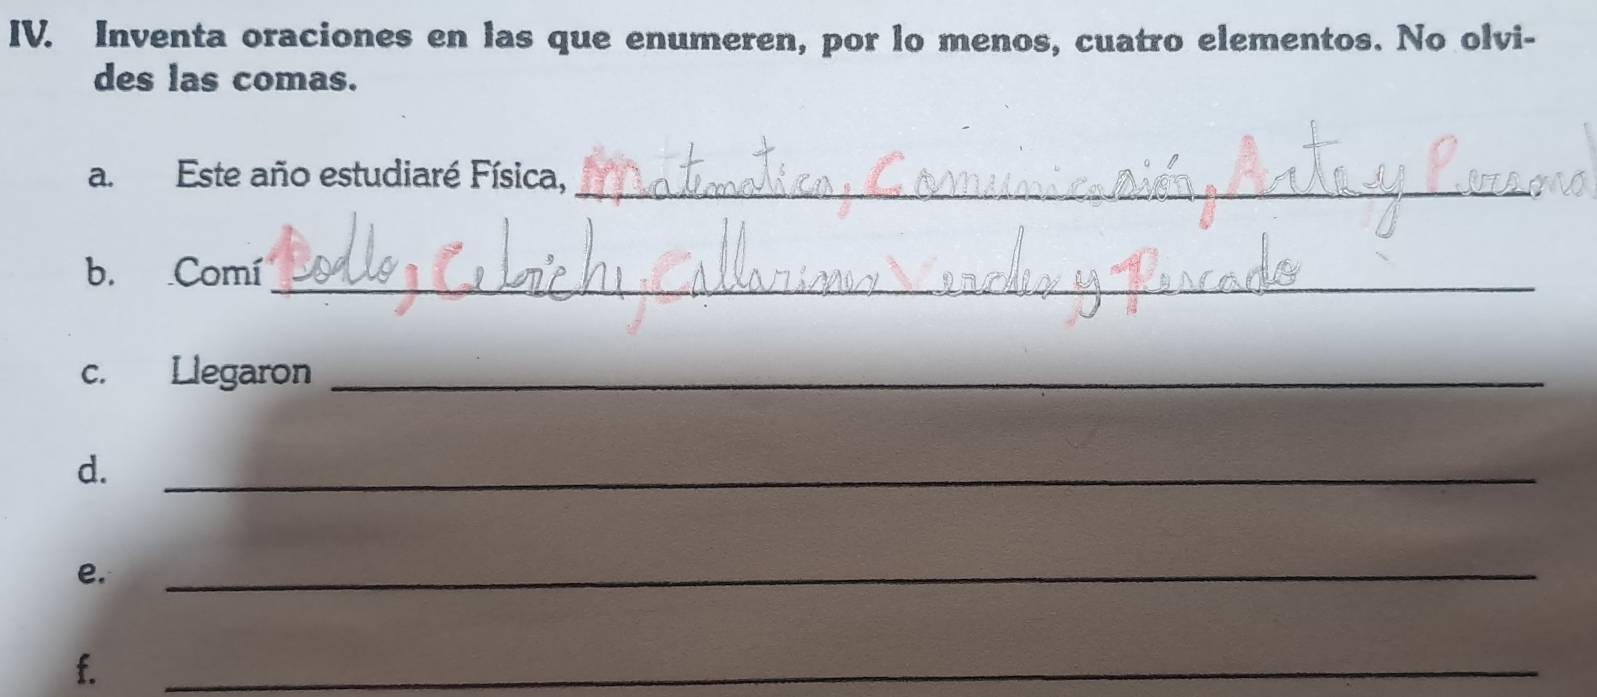 IV. Inventa oraciones en las que enumeren, por lo menos, cuatro elementos. No olvi-
des las comas.
a. Este año estudiaré Física, Matematica, Comunicasión, Arte y Persona
b. Comí Pollo, Cebiche, Callarines Verdes y Pescado
c. Llegaron
d.
e.
f.